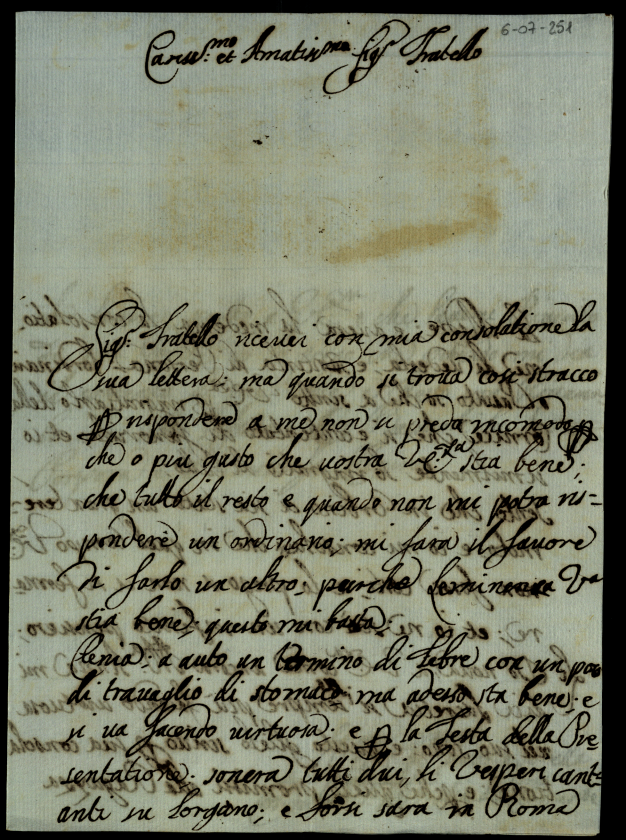 6-07-251
Cariss:mo et Amatiss:mo Sigr Fratello
Sigr: Fratello ricevei con mia consolatione la
Sua lettera; ma quando si trova cosi stracco
p rispondere a me non si preda incomodo p
che o piu gusto che vostra Vza stia bene;
che tutto il resto e quando non mi potra ris-
pondere un ordinario; mi fara il favore
di farlo un altro; perche Va
stia bene; questo mi basta;
Clenia; a auto un termino di Febre con un poco
di travaglio di stomaco; ma adesso sta bene; e
si va facendo virtuosa; e p la Festa della Pre
sentatione; sonera tutti dui, li Vesperi cant-
anti su lorgano; e forsi sara in Roma